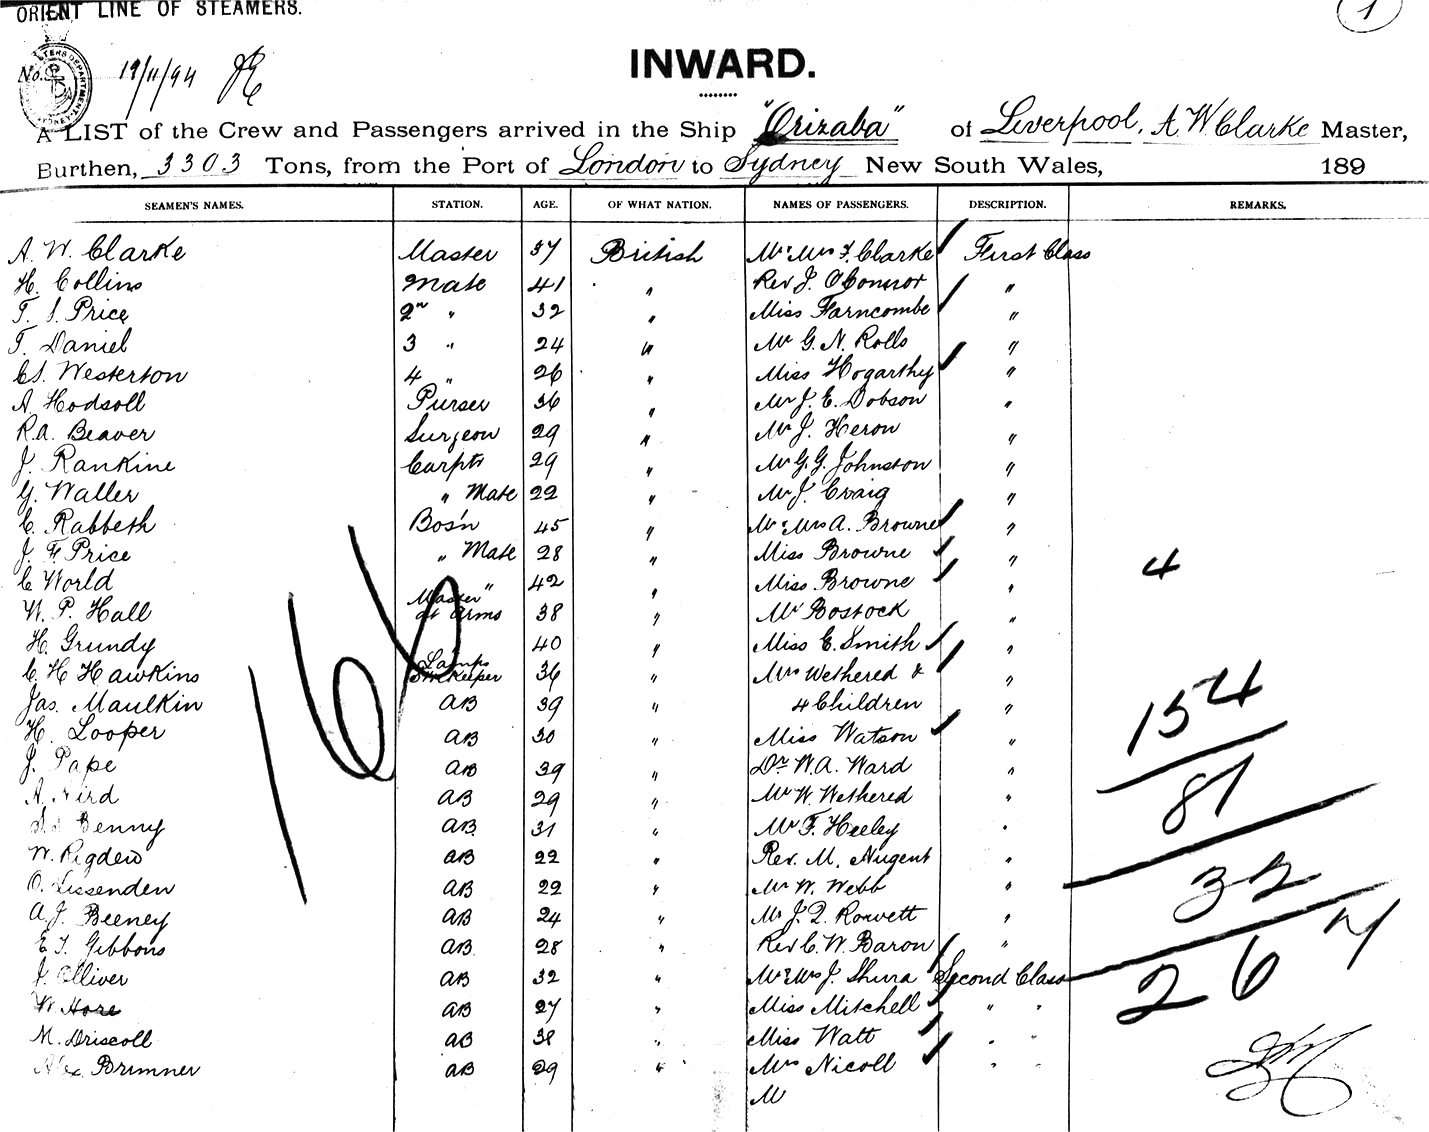 ORIENT LINE OF STEAMERS.
1
No.
19/11/94
INWARD.
A LIST of the Crew and Passengers arrived in the Ship "Orizaba" of Liverpool, A. W. Clarke Master,
Burthen, 3303 Tons, from the Port of London to Sydney New South Wales, 189
SEAMEN'S NAMES. STATION. AGE. OF WHAT NATION. NAMES OF PASSENGERS. DESCRIPTION. REMARKS.
A. W. Clarke Master 37 British Mr & Mrs F. Clarke First Class
H. Collins Mate 41 " Rev J. O'Connor "
T. S. Price 2nd " 32 " Miss Farncombe "
T. Daniel 3 " 24 " Mr G. N. Rolls "
C. S. Westerton 4 " 26 " Miss Hogarthy "
A. Hodsoll Purser 36 " Mr J. E. Dobson "
R. A. Beaver Surgeon 29 " Mr J. Heron "
J. Rankine Carptr 29 " Mr G. G. Johnston "
G. Waller " Mate 22 " Mr J. Craig "
C. Rabbeth Bos'n 45 " Mr & Mrs A. Browne "
J. F. Price " Mate 28 " Miss Browne "
C World " 42 " Miss Browne " 4
W. P. Hall Master at Arms 38 " Mr Bostock "
H. Grundy 40 " Miss E. Smith "
C. H Hawkins Lamps Storekeeper 36 " Mrs Wethered & "
Jas. Maulkin AB 39 " 4 Children " 154
H. Looper AB 30 " Miss Watson "
J. Pape AB 39 " Dr W. A. Ward "
A. Nird AB 29 " Mr W. Wethered " 81
Benny AB 31 " Mr F. Heeley "
W. Rigden AB 22 " Rev. M. Nugent "
O. Lissenden AB 22 " Mr W. Webb " 32
A. J. Beeney AB 24 " Mr J. Q. Rowett "
E. T. Gibbons AB 28 " Rev C. W. Baron "
J. Olliver AB 32 " Mr & Mrs J. Shirra Second Class 267
W Hore AB 27 " Miss Mitchell " "
M. Driscoll AB 38 " Miss Watt " "
Alex Brimner AB 29 " Mrs Nicoll " "
M
166